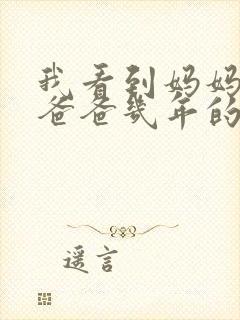 我看到妈妈
爸爸几年的
遥言